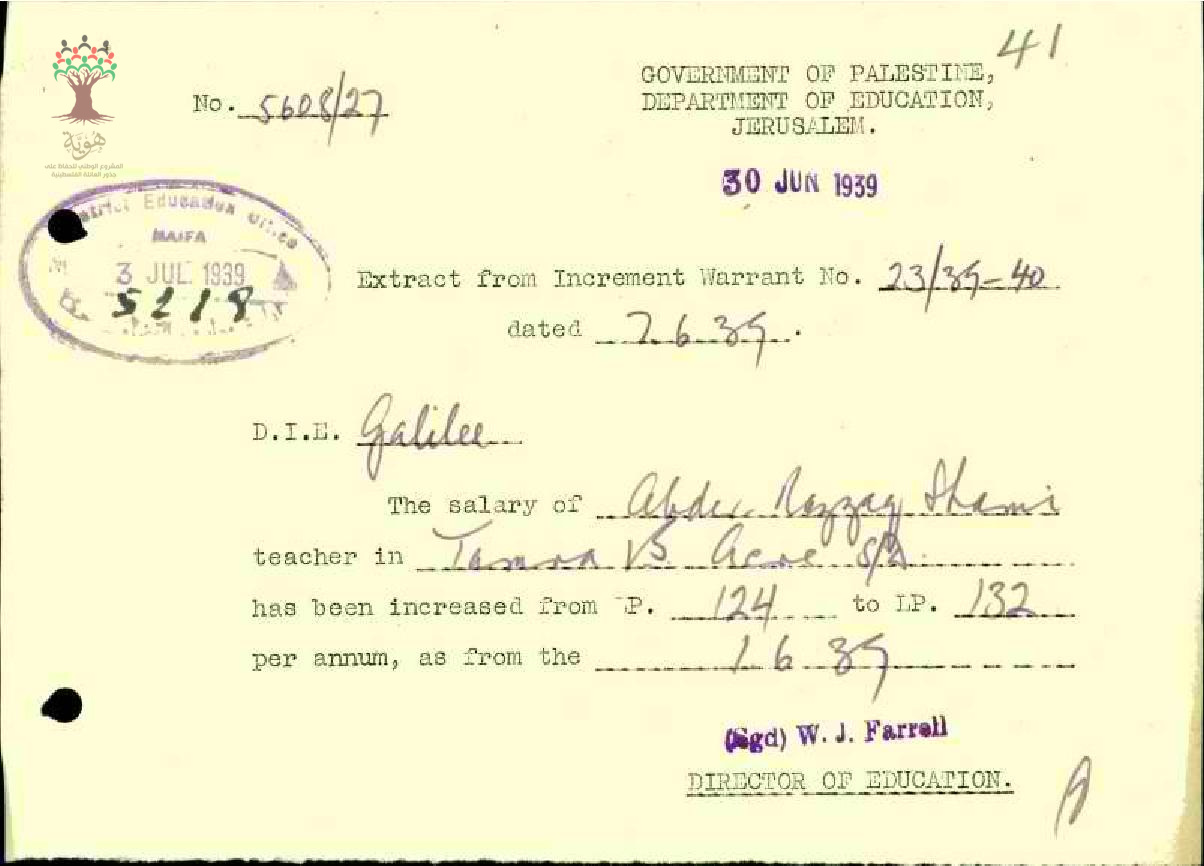 41
GOVERNMENT OF PALESTINE,
DEPARTMENT OF EDUCATION,
JERUSALEM.
No. 5608/27
هُوِيَّة
المشروع الوطني للحفاظ على
جذور العائلة الفلسطينية
30 JUN 1939
District Education Office
HAIFA
3 JUL 1939
5218
Extract from Increment Warrant No. 23/39-40
dated 7.6.39.
D.I.E. Galilee
The salary of Abder Razzaq Shami
teacher in Tamra B. Acre S/D.
has been increased from LP. 124 to LP. 132
per annum, as from the 1 6 39
(Sgd) W. J. Farrell
DIRECTOR OF EDUCATION.